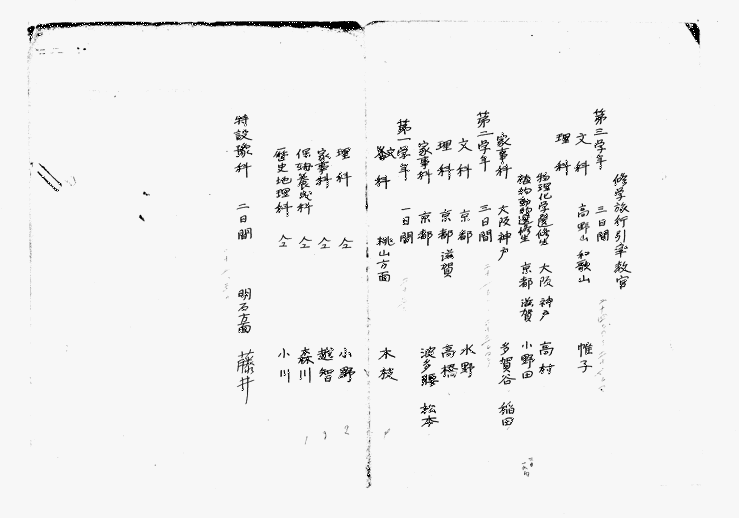 修学旅行引率教官
第三学年 三日間
文科 高野山 和歌山 帷子
理科
物理化学選修生 大阪 神戸 高村
植物動物選修生 京都 滋賀 小野田
家事科 大阪神戸 多賀谷 稲田
第二学年 三日間
文科 京都 水野
理科 京都滋賀 高橋
家事科 京都 波多腰 松本
第一学年 一日間
文科 桃山方面 木枝
理科 〃 小野
家事科 〃 越智
保姆養成科 〃 森川
歴史地理科 〃 小川
特設豫科 二日間 明石方面 藤井